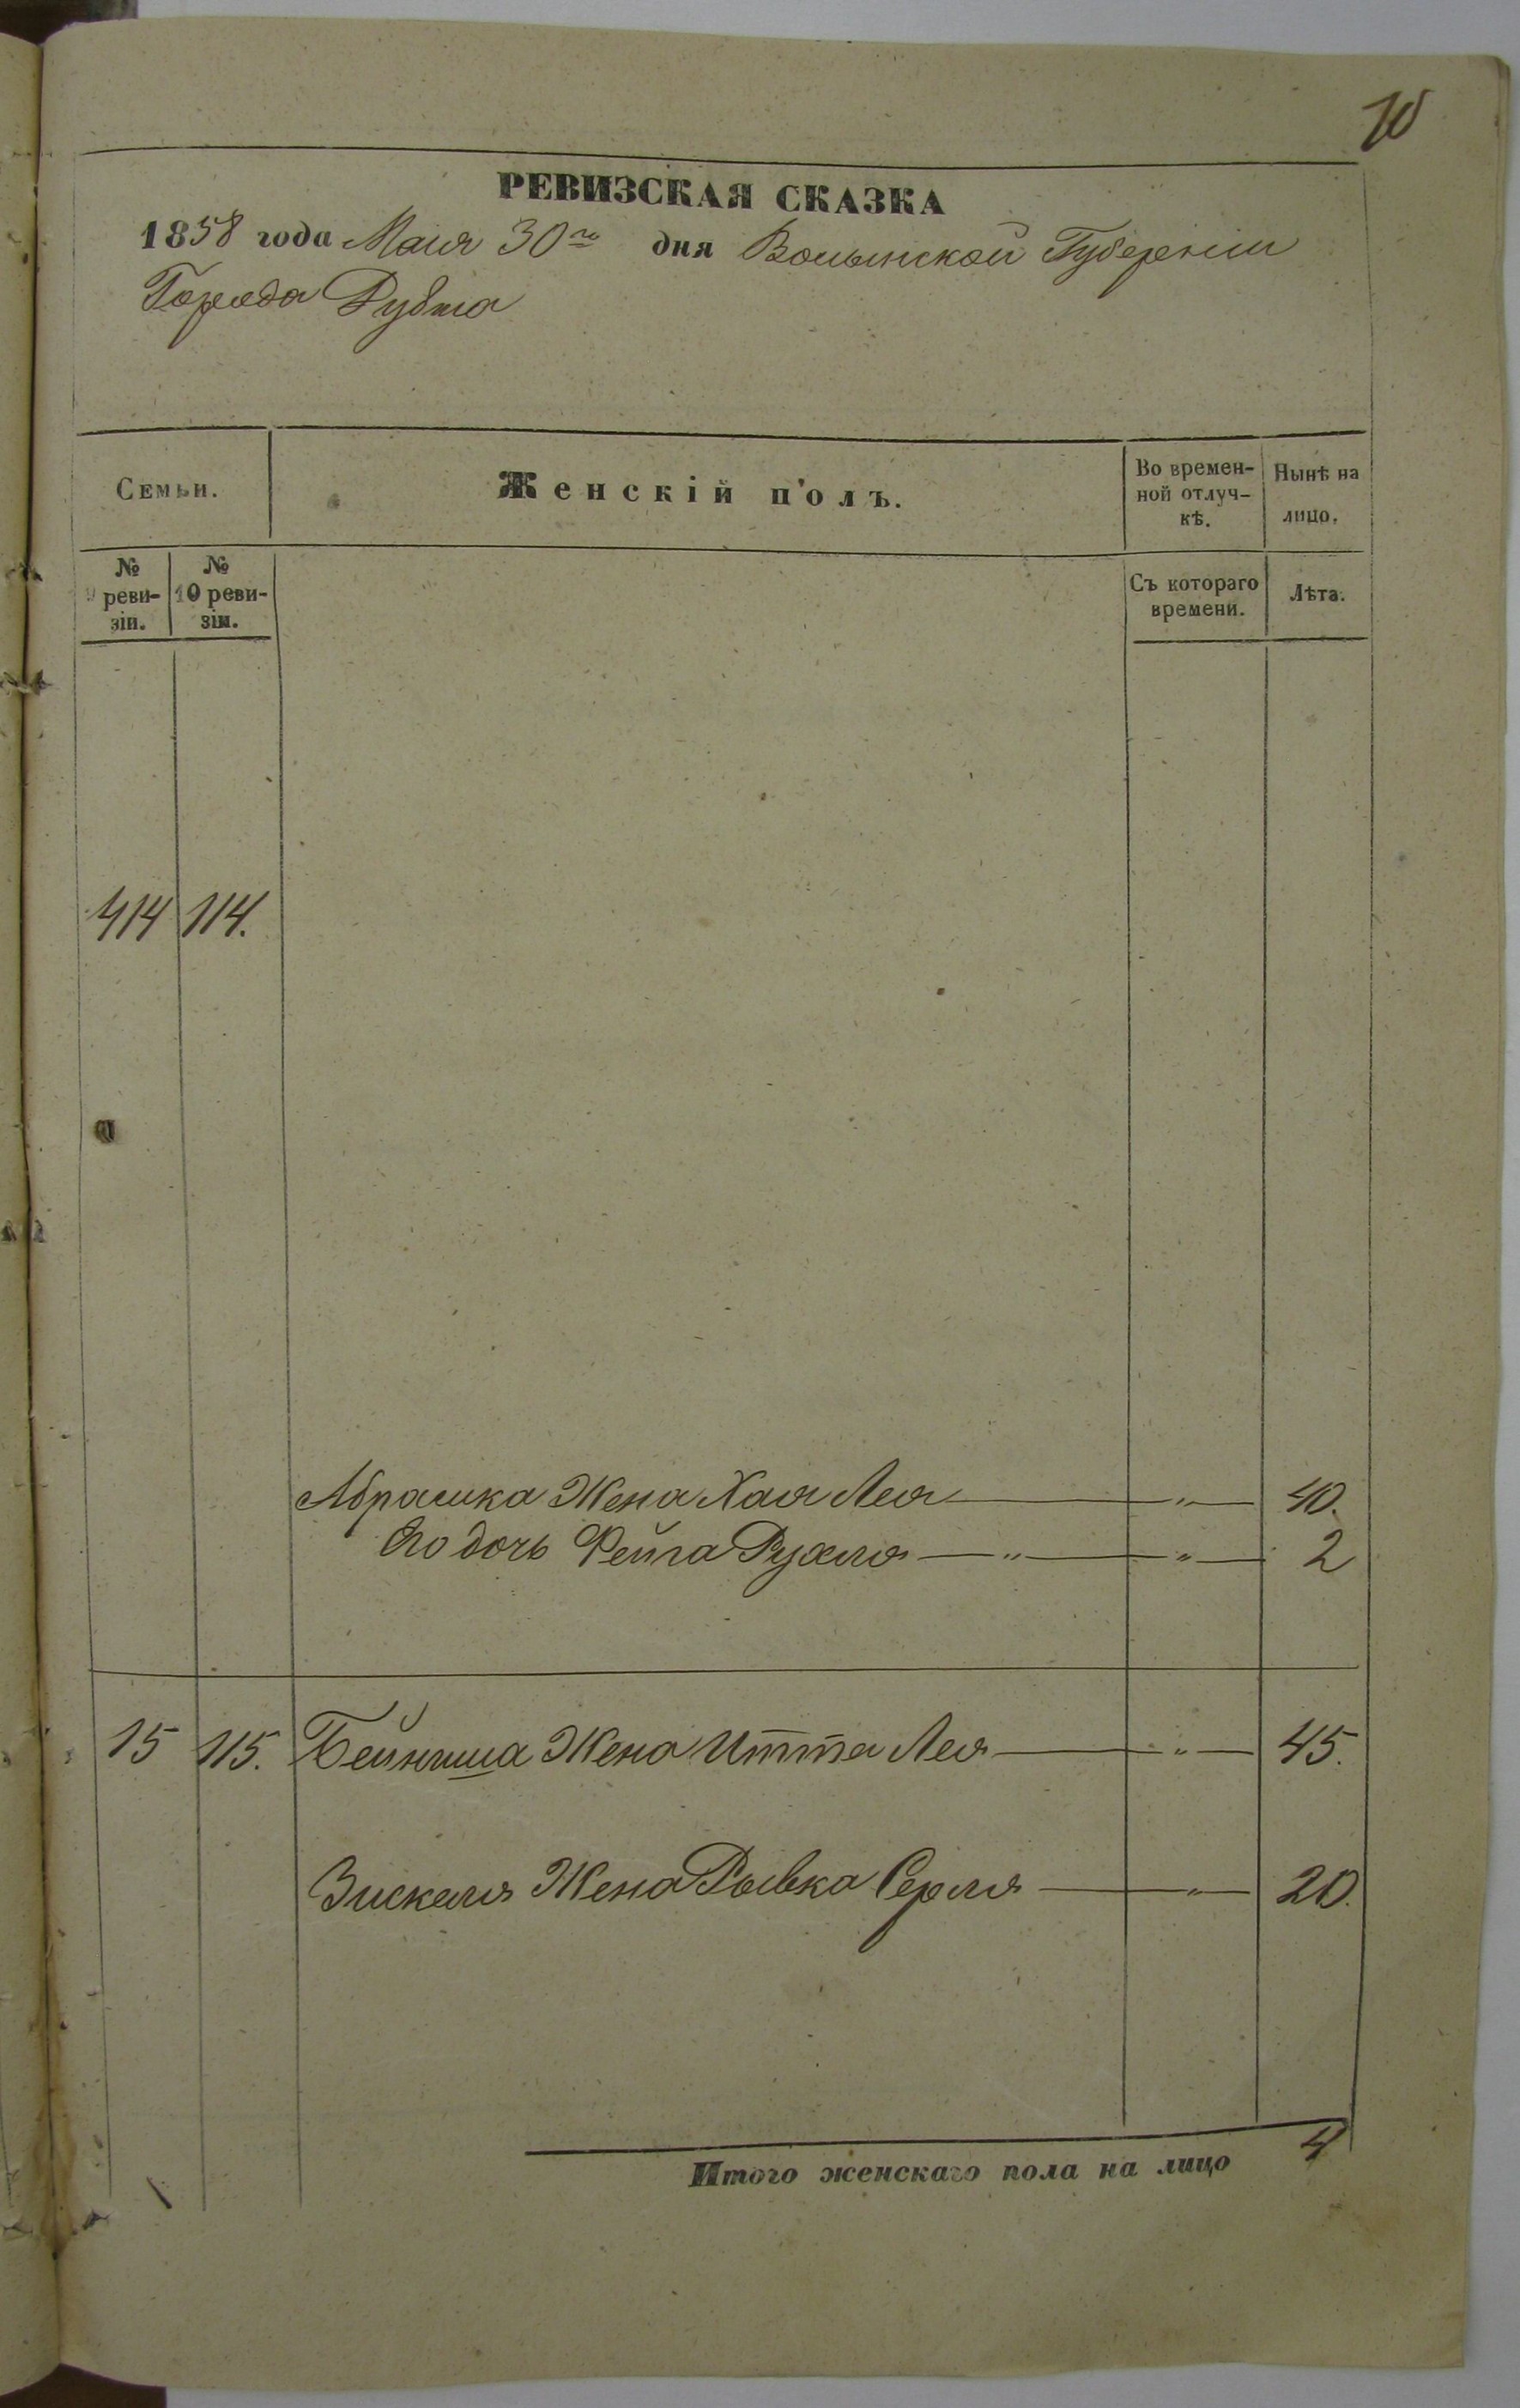 10
РЕВИЗСКАЯ СКАЗКА
1858 года Мая 30го дня Волынской Губернии
Города Дубна
Семьи.
Женскій полъ.
Во времен-
ной отлуч-
кѣ.
Нынѣ на
лицо.
№
9 реви-
зіи.
№
10 реви-
зіи.
Съ котораго
времени.
Лѣта.
414 114.
Абрашка Жена Хая Лея — " — 40.
Его дочь Фейга Рухля — " — " — 2
15 115. Бейниша Жена Итта Лея — " — 45.
Зискеля Жена Рывка Серля — " — 20.
Итого женскаго пола на лицо 4